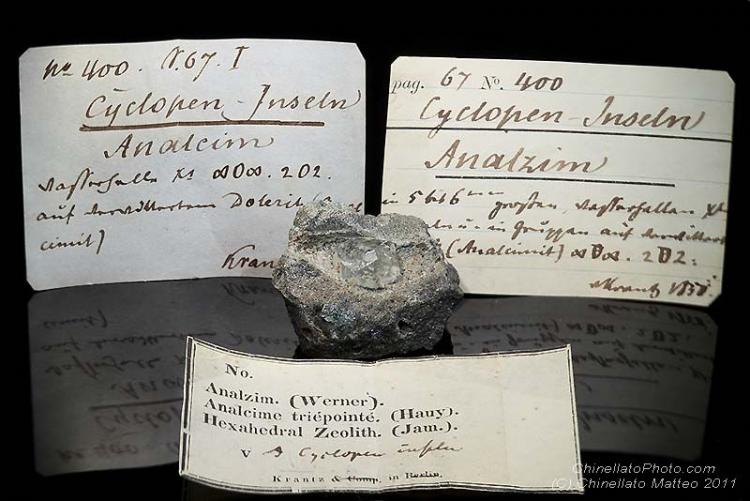 No 400. P. 67. I
Cyclopen-Inseln
Analcim
wasserhelle Xe ∞O∞. 2O2.
auf verwittertem Dolerit
cimit)
Krantz
pag. 67 No. 400
Cyclopen-Inseln
Analzim
in 5 bis 6 mm großen, wasserhellen
u. in Gruppen auf verwittert
(Analcimit) ∞O∞. 2O2.
Krantz 1838.
No.
Analzim. (Werner).
Analcime triépointé. (Hauy).
Hexahedral Zeolith. (Jam.).
v Cyclopen inseln
Krantz & Comp. in Berlin.
ChinellatoPhoto.com
(C) Chinellato Matteo 2011